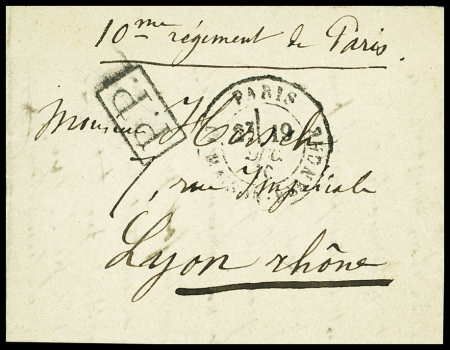 10me régiment de Paris.
P.P.
PARIS
19
DEC.
Monsieur Hersch
7, rue Impériale
Lyon rhône